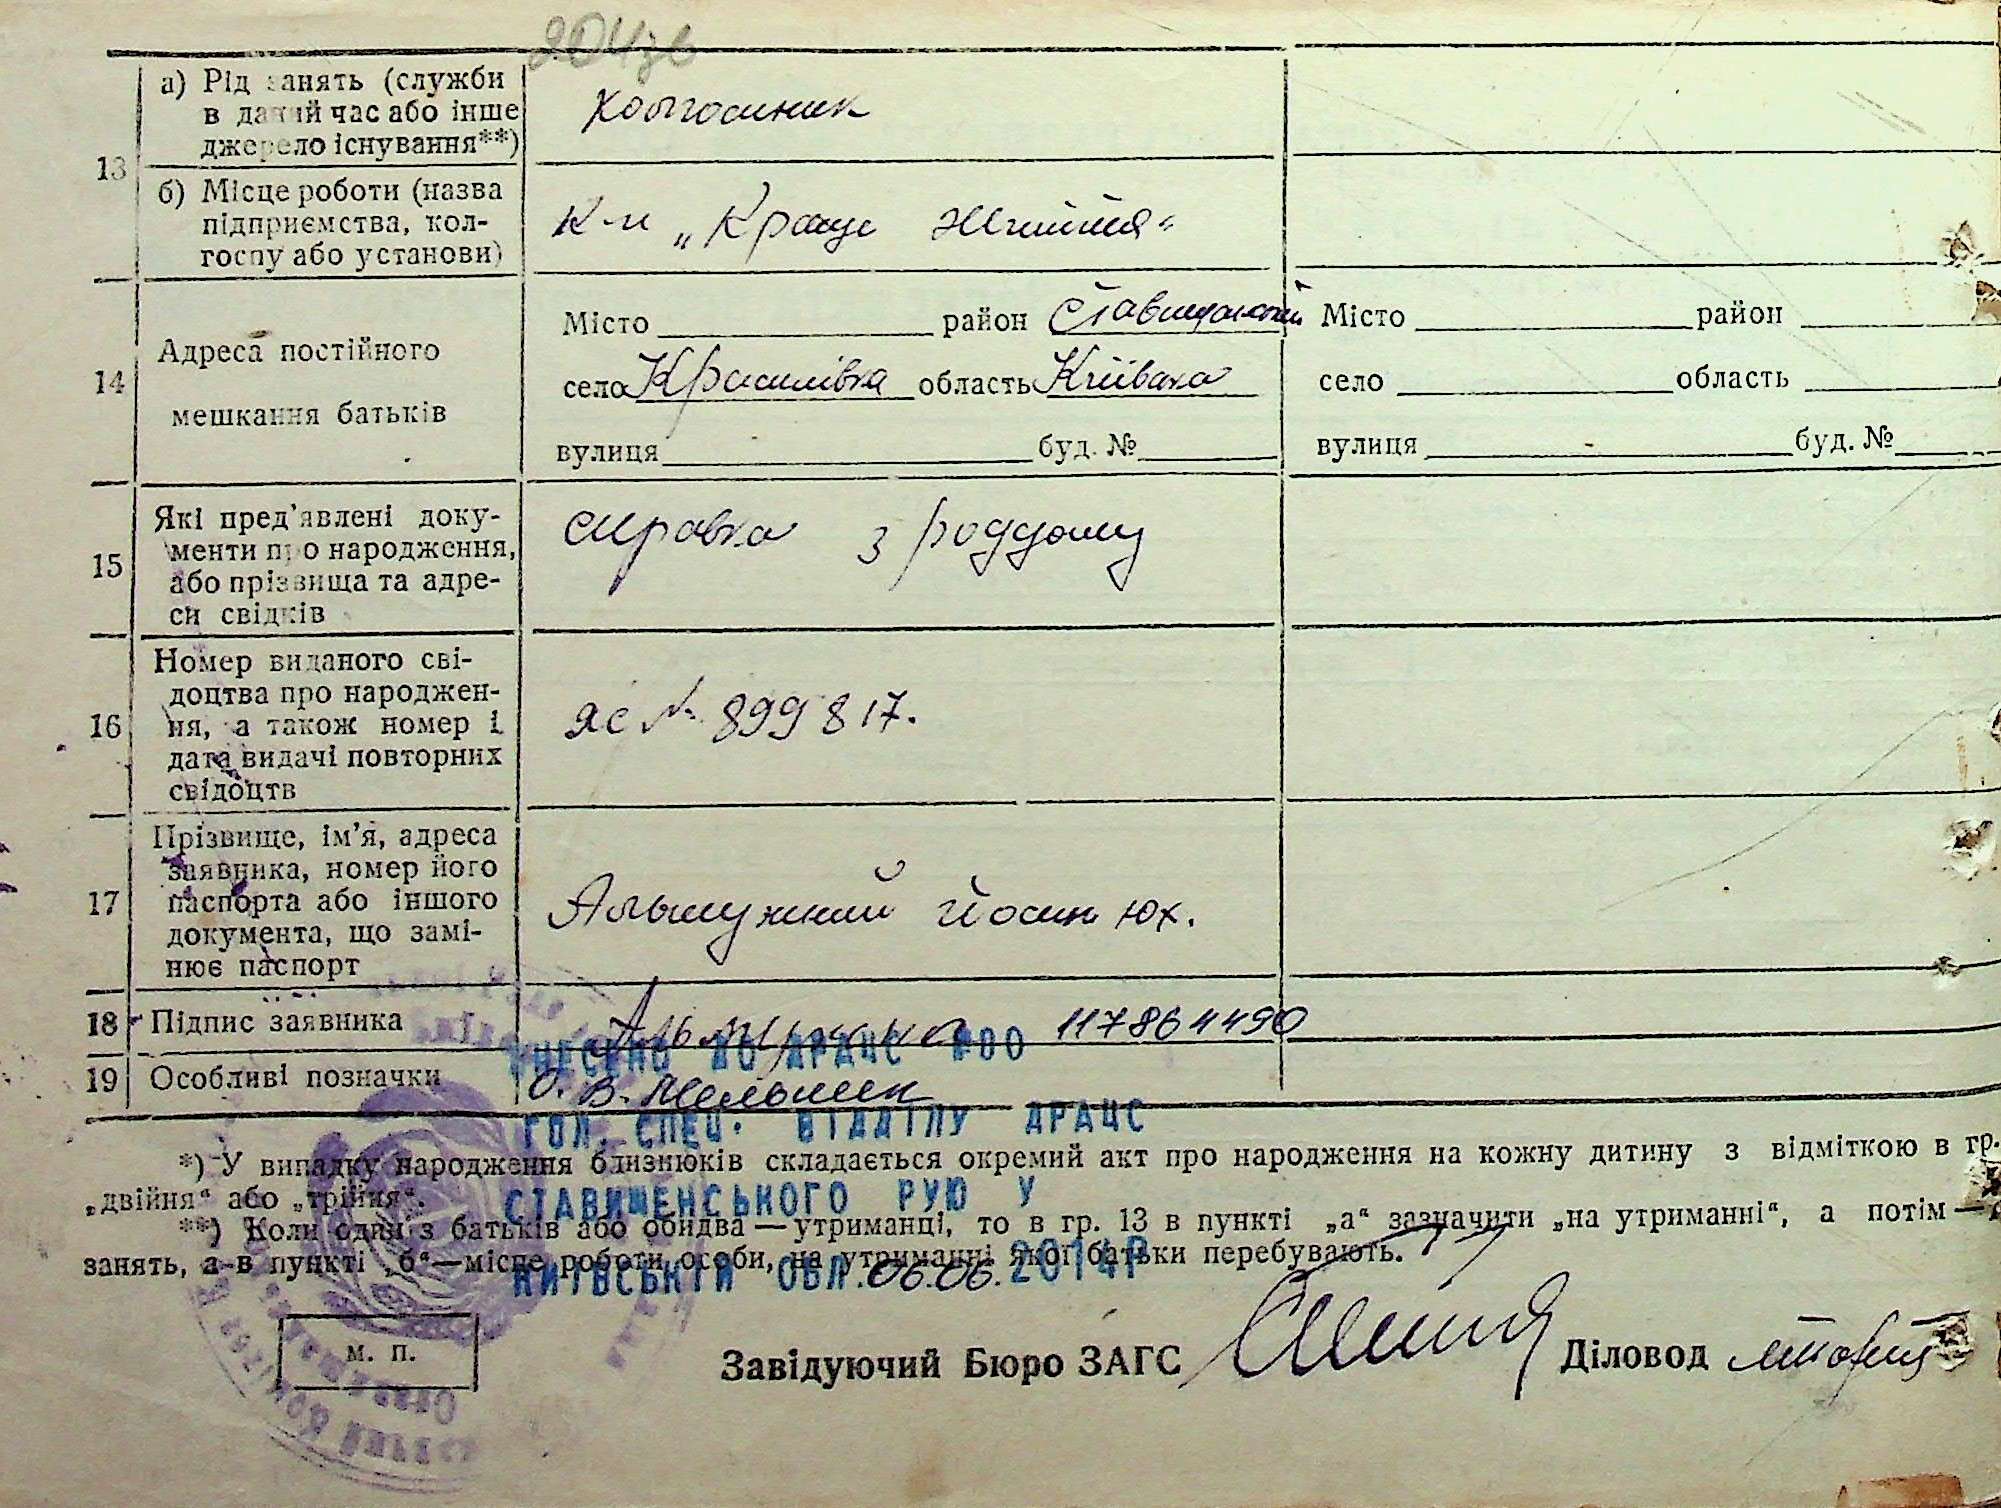 204зв
13
а) Рід занять (служби
в даний час або інше
джерело існування**)
Колгоспник
б) Місце роботи (назва
підприємства, кол-
госпу або установи)
к-п „Краще життя“
14
Адреса постійного
мешкання батьків
Місто район Ставищанський
село Красилівка область Київська
вулиця буд. №
Місто район
село область
вулиця буд. №
15
Які пред’явлені доку-
менти про народження,
або прізвища та адре-
си свідків
справка з роддому
16
Номер виданого сві-
доцтва про народжен-
ня, а також номер і
дата видачі повторних
свідоцтв
ЯС № 899817.
17
Прізвище, ім’я, адреса
заявника, номер його
паспорта або іншого
документа, що замі-
нює паспорт
Альшужний Йосип Юх.
18 Підпис заявника
117864490
19 Особливі позначки
ВНЕСЕНО ДО ДРАЦС №00
О. В. Мельник
ГОЛ. СПЕЦ. ВІДДІЛУ ДРАЦС
*) У випадку народження близнюків складається окремий акт про народження на кожну дитину з відміткою в гр.
„двійня“ або „трійня“.
СТАВИЩЕНСЬКОГО РУЮ У
**) Коли один з батьків або обидва — утриманці, то в гр. 13 в пункті „а“ зазначити „на утриманні“, а потім —
занять, а в пункті „б“ — місце роботи особи, на утриманні якої батьки перебувають.
КИЇВСЬКІЙ ОБЛ. 06.06. 2014Р
м. п.
Завідуючий Бюро ЗАГС
Діловод